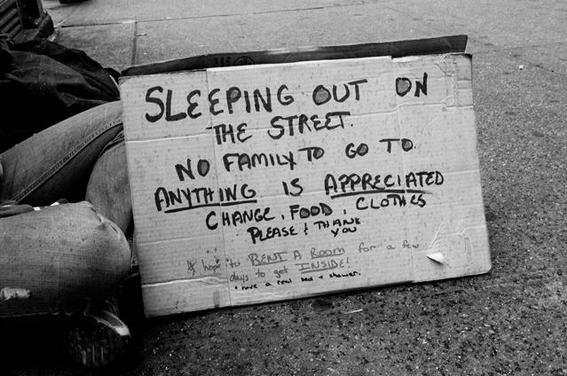 SLEEPING OUT ON
THE STREET.
NO FAMILY TO GO TO.
ANYTHING IS APPRECIATED
CHANGE, FOOD, CLOTHES
PLEASE & THANK
YOU
hope to RENT A ROOM for a few
days to get INSIDE!
have a real bed & shower.